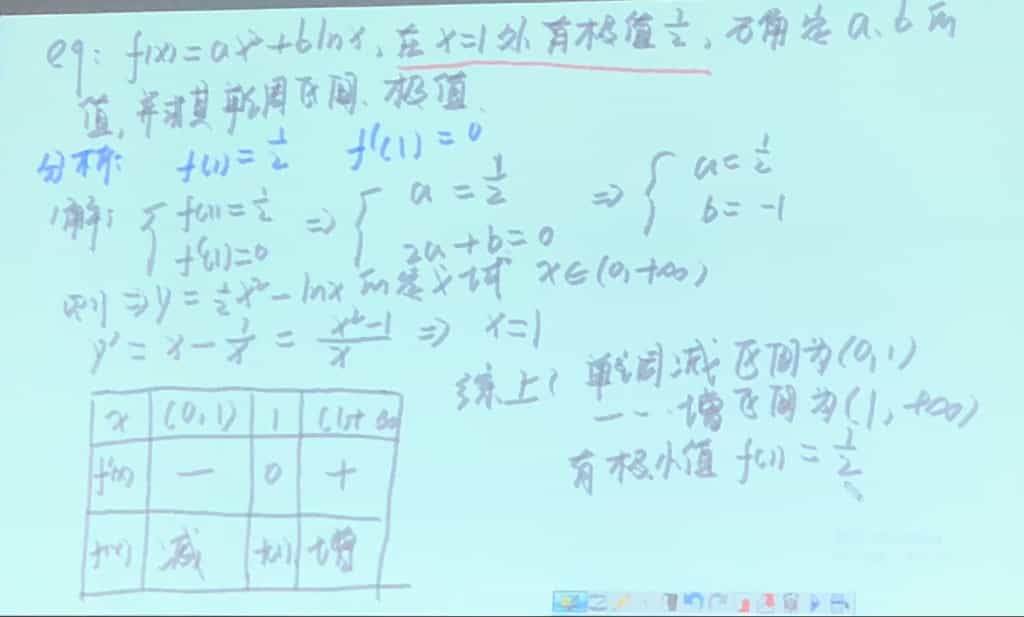 eg: f(x)=ax²+blnx, 在x=1处有极值1/2, 确定a、b的
值, 并求其单调区间、极值.
分析: f(1)=1/2 f'(1)=0
解: { f(1)=1/2 f'(1)=0 ⇒ { a=1/2 2a+b=0 ⇒ { a=1/2 b=-1
则 ⇒ y=1/2x²-lnx 的定义域 x∈(0,+∞)
y'=x-1/x=x²-1/x ⇒ x=1
x (0,1) 1 (1,+∞)
f'(x) — 0 +
f(x) 减 f(1) 增
综上: 单调减区间为(0,1)
— — 增区间为(1,+∞)
有极小值 f(1)=1/2